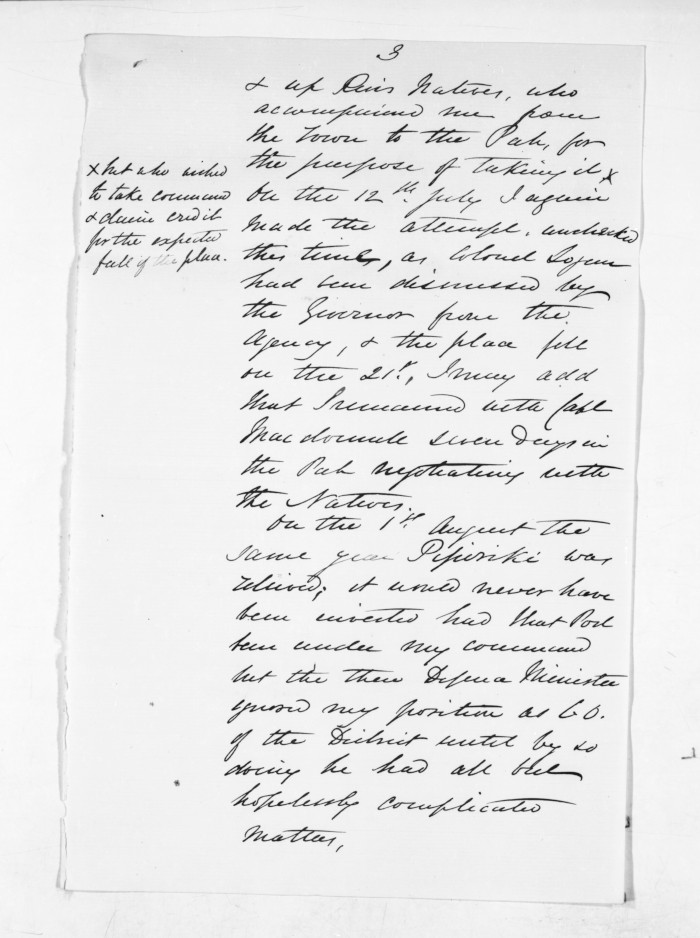 3
& up River Natives, who
accompanied me from
the Town to the Pah, for
the purpose of taking it, x
x but who wished
to take command
& claim credit
for the expected
fall of the place.
On the 12th July I again
made the attempt, unchecked
this time, as Colonel Logan
had been dismissed by
the Governor from the
Agency, & the place fell
on the 21st, I may add
that I remained with Capt
Macdonnell seven days in
the Pah negotiating with
the Natives.
On the 1st August the
same year Pipiriki was
relieved; it would never have
been invested had that Post
been under my command
but the then Defence Minister
ignored my position as C.O.
of the District until by so
doing he had all but
hopelessly complicated
matters,